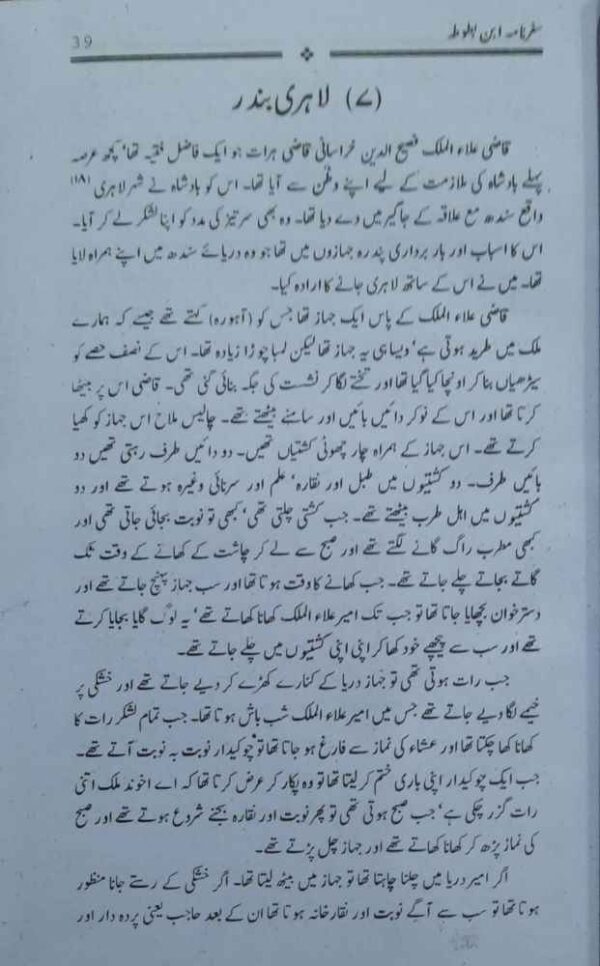 سفرنامہ ابن بطوطہ
39
(۷) لاہری بندر
قاضی علاء الملک فصیح الدین خراسانی قاضی ہرات جو ایک فاضل فقیہ تھا، کچھ عرصہ
پہلے بادشاہ کی ملازمت کے لیے اپنے وطن سے آیا تھا۔ اس کو بادشاہ نے شہر لاہری (۱۸)
واقع سندھ مع علاقہ کے جاگیر میں دے دیا تھا۔ وہ بھی سرتیز کی مدد کو اپنا لشکر لے کر آیا۔
اس کا اسباب اور بار برداری پندرہ جہازوں میں تھا جو وہ دریائے سندھ میں اپنے ہمراہ لایا
تھا۔ میں نے اس کے ساتھ لاہری جانے کا ارادہ کیا۔
قاضی علاء الملک کے پاس ایک جہاز تھا جس کو (آہورہ) کہتے تھے جیسے کہ ہمارے
ملک میں طرید ہوتی ہے، ویسا ہی یہ جہاز تھا لیکن لمبا چوڑا زیادہ تھا۔ اس کے نصف حصے کو
سیڑھیاں بنا کر اونچا کیا گیا تھا اور تختے لگا کر نشست کی جگہ بنائی گئی تھی۔ قاضی اس پر بیٹھا
کرتا تھا اور اس کے نوکر دائیں بائیں اور سامنے بیٹھتے تھے۔ چالیس ملاح اس جہاز کو کھیا
کرتے تھے۔ اس جہاز کے ہمراہ چار چھوٹی کشتیاں تھیں۔ دو دائیں طرف رہتی تھیں دو
بائیں طرف۔ دو کشتیوں میں طبل اور نقارہ، علم اور سرنائی وغیرہ ہوتے تھے اور دو
کشتیوں میں اہل طرب بیٹھتے تھے۔ جب کشتی چلتی تھی، کبھی تو نوبت بجائی جاتی تھی اور
کبھی مطرب راگ گانے لگتے تھے اور صبح سے لے کر چاشت کے کھانے کے وقت تک
گاتے بجاتے چلے جاتے تھے۔ جب کھانے کا وقت ہوتا تھا اور سب جہاز پہنچ جاتے تھے اور
دسترخوان بچھایا جاتا تھا تو جب تک امیر علاء الملک کھانا کھاتے تھے، یہ لوگ گایا بجایا کرتے
تھے اور سب سے پیچھے خود کھا کر اپنی اپنی کشتیوں میں چلے جاتے تھے۔
جب رات ہوتی تھی تو جہاز دریا کے کنارے کھڑے کر دیے جاتے تھے اور خشکی پر
خیمے لگا دیے جاتے تھے جس میں امیر علاء الملک شب باش ہوتا تھا۔ جب تمام لشکر رات کا
کھانا کھا چکتا تھا اور عشاء کی نماز سے فارغ ہو جاتا تھا تو چوکیدار نوبت بہ نوبت آتے تھے۔
جب ایک چوکیدار اپنی باری ختم کر لیتا تھا تو وہ پکار کر عرض کرتا تھا کہ اے اخوند ملک اتنی
رات گزر چکی ہے، جب صبح ہوتی تھی تو پھر نوبت اور نقارہ بجنے شروع ہوتے تھے اور صبح
کی نماز پڑھ کر کھانا کھاتے تھے اور جہاز چل پڑتے تھے۔
اگر امیر دریا میں چلنا چاہتا تھا تو جہاز میں بیٹھ لیتا تھا۔ اگر خشکی کے رستے جانا منظور
ہوتا تھا تو سب سے آگے نوبت اور نقار خانہ ہوتا تھا ان کے بعد حاجب یعنی پردہ دار اور